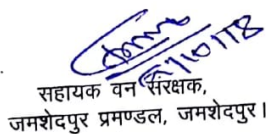 सहायक वन संरक्षक,
जमशेदपुर प्रमण्डल, जमशेदपुर।